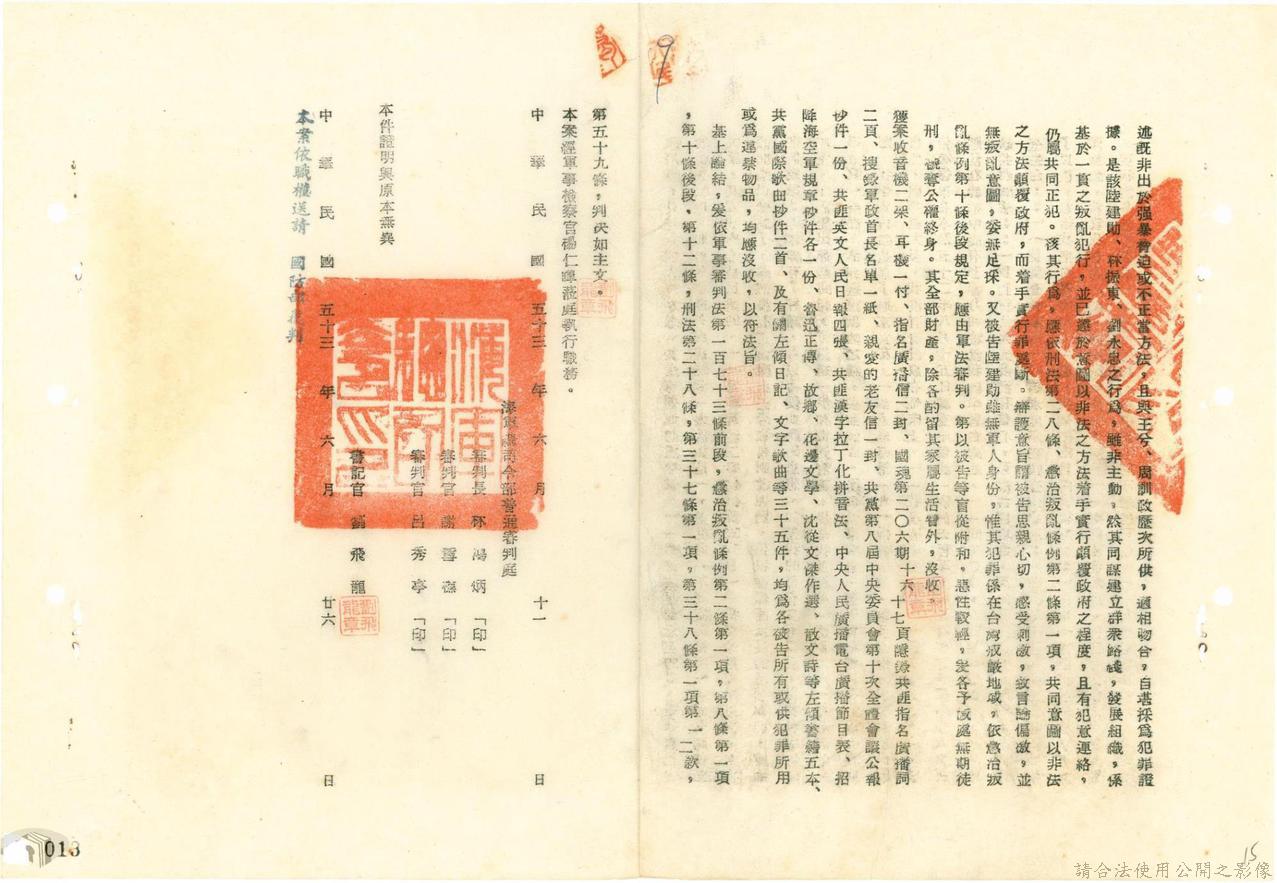 述既非出於强暴脅迫或不正當方法，且與王兮、周訓政歷次所供，適相吻合，自堪採爲犯罪證
據。是該陸建勛、林振東、劉永忠之行爲，雖非主動，然其同謀建立群衆路綫，發展組織，係
基於一貫之叛亂犯行，並已達於意圖以非法之方法着手實行顛覆政府之程度，且有犯意連絡，
仍屬共同正犯。該其行爲，應依刑法第二八條、懲治叛亂條例第二條第一項，共同意圖以非法
之方法顛覆政府，而着手實行罪處斷。辯護意旨謂被告思親心切，感受刺激，致言論偏激，並
無叛亂意圖，委無足採。又被告陸建勛雖無軍人身份，惟其犯罪係在台灣戒嚴地域，依懲治叛
亂條例第十條後段規定，應由軍法審判。第以被告等盲從附和，惡性較輕，爰各予減處無期徒
刑，褫奪公權終身。其全部財產，除各酌留其家屬生活費外，沒收。
獲案收音機二架、耳機一付、指名廣播信二封、國魂第二〇六期十六十七頁隱錄共匪指名廣播詞
二頁、搜錄軍政首長名單一紙、親愛的老友信一封、共黨第八屆中央委員會第十次全體會議公報
抄件一份、共匪英文人民日報四張、共匪漢字拉丁化拼音法、中央人民廣播電台廣播節目表、招
降海空軍規章抄件各一份、魯迅正傳、故鄉、花邊文學、沈從文傑作選、散文詩等左傾書籍五本、
共黨國際歌曲抄件二首、及有關左傾日記、文字歌曲等三十五件，均爲各被告所有或供犯罪所用
或爲違禁物品，均應沒收，以符法旨。
基上論結，爰依軍事審判法第一百七十三條前段，懲治叛亂條例第二條第一項，第八條第一項
，第十條後段，第十二條，刑法第二十八條，第三十七條第一項，第三十八條第一項第一二款，
第五十九條，判決如主文。
本案經軍事檢察官楊仁蒞庭執行職務。
中華民國五十三年六月十一日
海軍總司令部普通審判庭
審判長 林鴻炳「印」
審判官 謝雪「印」
審判官 呂秀亭「印」
本件證明與原本無異
書記官 劉飛龍
劉飛龍章
中華民國五十三年六月廿六日
本案依職權送請 國防部覆判
9
15
013
請合法使用公開之影像